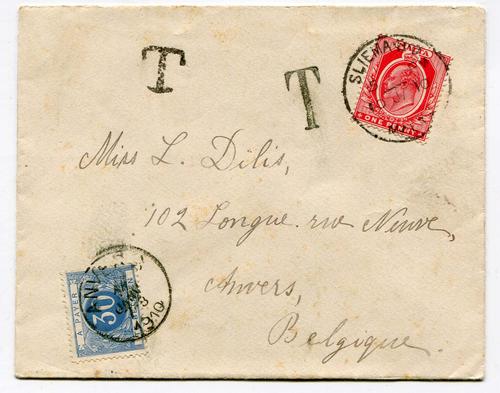 T T
SLIEMA
MALTA
ONE PENNY
Miss L. Dilis,
102 Longue rue Neuve,
Anvers,
Belgique.
A PAYER
30
1910